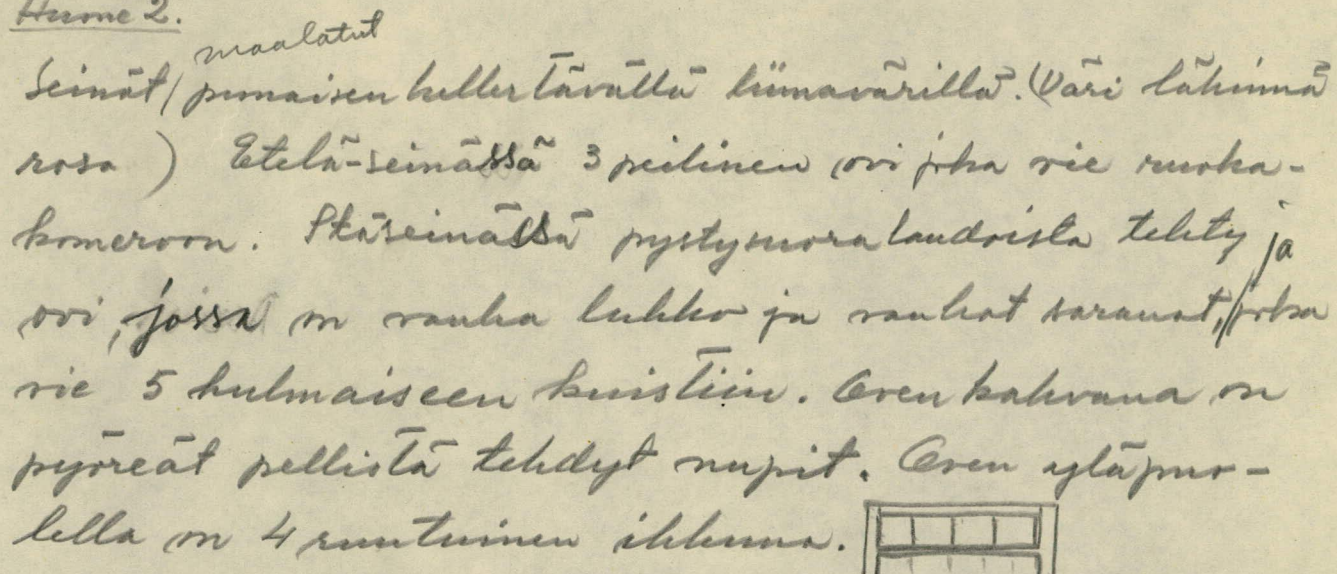 Huone 2.
maalatut
Seinät / punaisen kellertävällä liimavärillä. (Väri lähinnä
rosa ) Etelä-seinässä 3 peilinen ovi joka vie ruoka-
komeroon. Itäseinässä pystysuora laudoista tehty ja
ovi, jossa on rauha lukko ja rauhat saranat, / joka
vie 5 kulmaiseen kuistiin. Oven kahvana on
pyöreät pellistä tehdyt nupit. Oven yläpuo-
lella on 4 ruutuinen ikkuna.